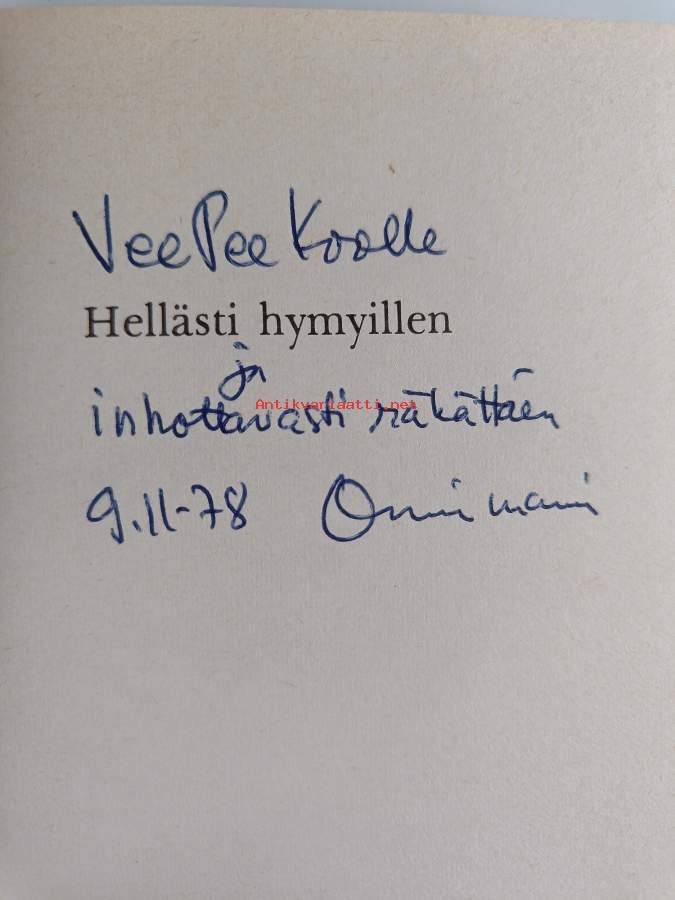 VeePee Koolle
Hellästi hymyillen
ja
Antikvariaatti.net
inhottavasti räkättäen
9.11-78